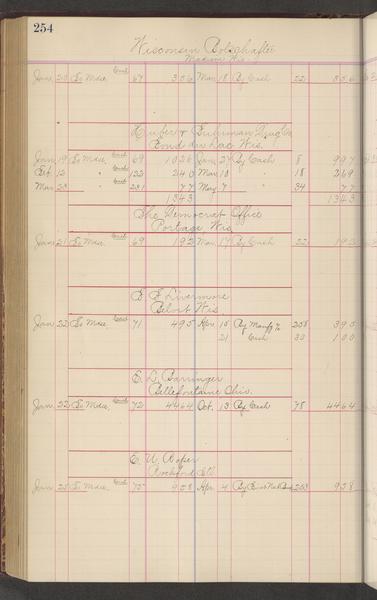 254
Wisconsin Botschafter
Madison Wis.
Jan. 20 To Mdse. 69 306 Mar 18 By Cash 22 306
Huber & Fuhrman Drug Co
Fond du Lac Wis.
Jan 19 To Mdse. 69 1026 Jan 27 By Cash 8 997
Feb. 12 " 122 240 Mar 10 " 18 269
Mar 23 " 231 77 May 7 " 34 77
1343 1343
The Democrat Office
Portage, Wis
Jan 21 To Mdse. 69 192 Mar 17 By Cash 22 192
Livermore
Beloit Wis
Jan 22 To Mdse. 71 495 Apr 15 By Manfg 258 395
21 Cash 30 100
E. L. Barringer
Bellefontaine Ohio.
Jan. 22 To Mdse. 72 4464 Oct. 13 By Cash 78 4464
E. W. Roper
Rockford Ill
Jan. 25 To Mdse. 75 958 Apr 4 By 253 958